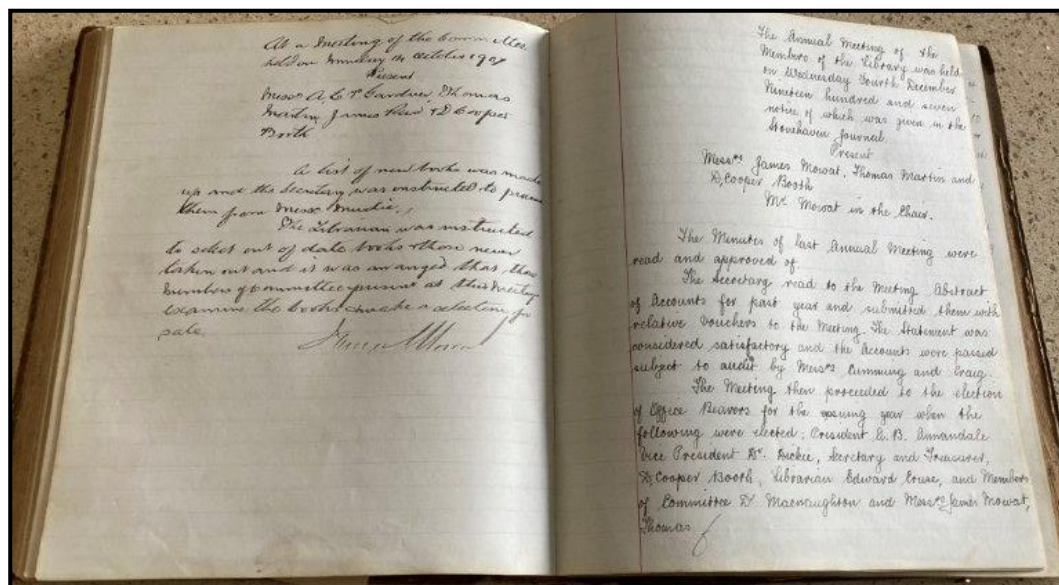 At a Meeting of the Committee
held on Monday 14 October 1907
Present
Messrs A. C. P. Gardner, Thomas
Martin James Reid & D Cooper
Booth
A list of new books was made
up and the Secretary was instructed to procure
them from Messrs Mudie.
The Librarian was instructed
to select out of date books & those never
taken out and it was arranged that the
members of Committee present at this meeting
examine the books & make a selection for
sale.
James Mowat
The Annual Meeting of the
Members of the Library was held
on Wednesday Fourth December
Nineteen hundred and seven
notice of which was given in the
Stonehaven Journal.
Present
Messrs James Mowat, Thomas Martin and
D, Cooper Booth
Mr Mowat in the Chair.
The Minutes of last Annual Meeting were
read and approved of.
The Secretary read to the Meeting Abstract
of Accounts for past year and submitted them with
relative Vouchers to the Meeting. The Statement was
considered satisfactory and the Accounts were passed
subject to audit by Messrs Cumming and Craig.
The Meeting then proceeded to the election
of Office Bearers for the ensuing year when the
following were elected; President A. B. Annandale
Vice President Dr. Dickie, Secretary and Treasurer,
D, Cooper Booth, Librarian Edward Cruse, and Members
of Committee Dr Macnaughton and Messrs James Mowat,
Thomas